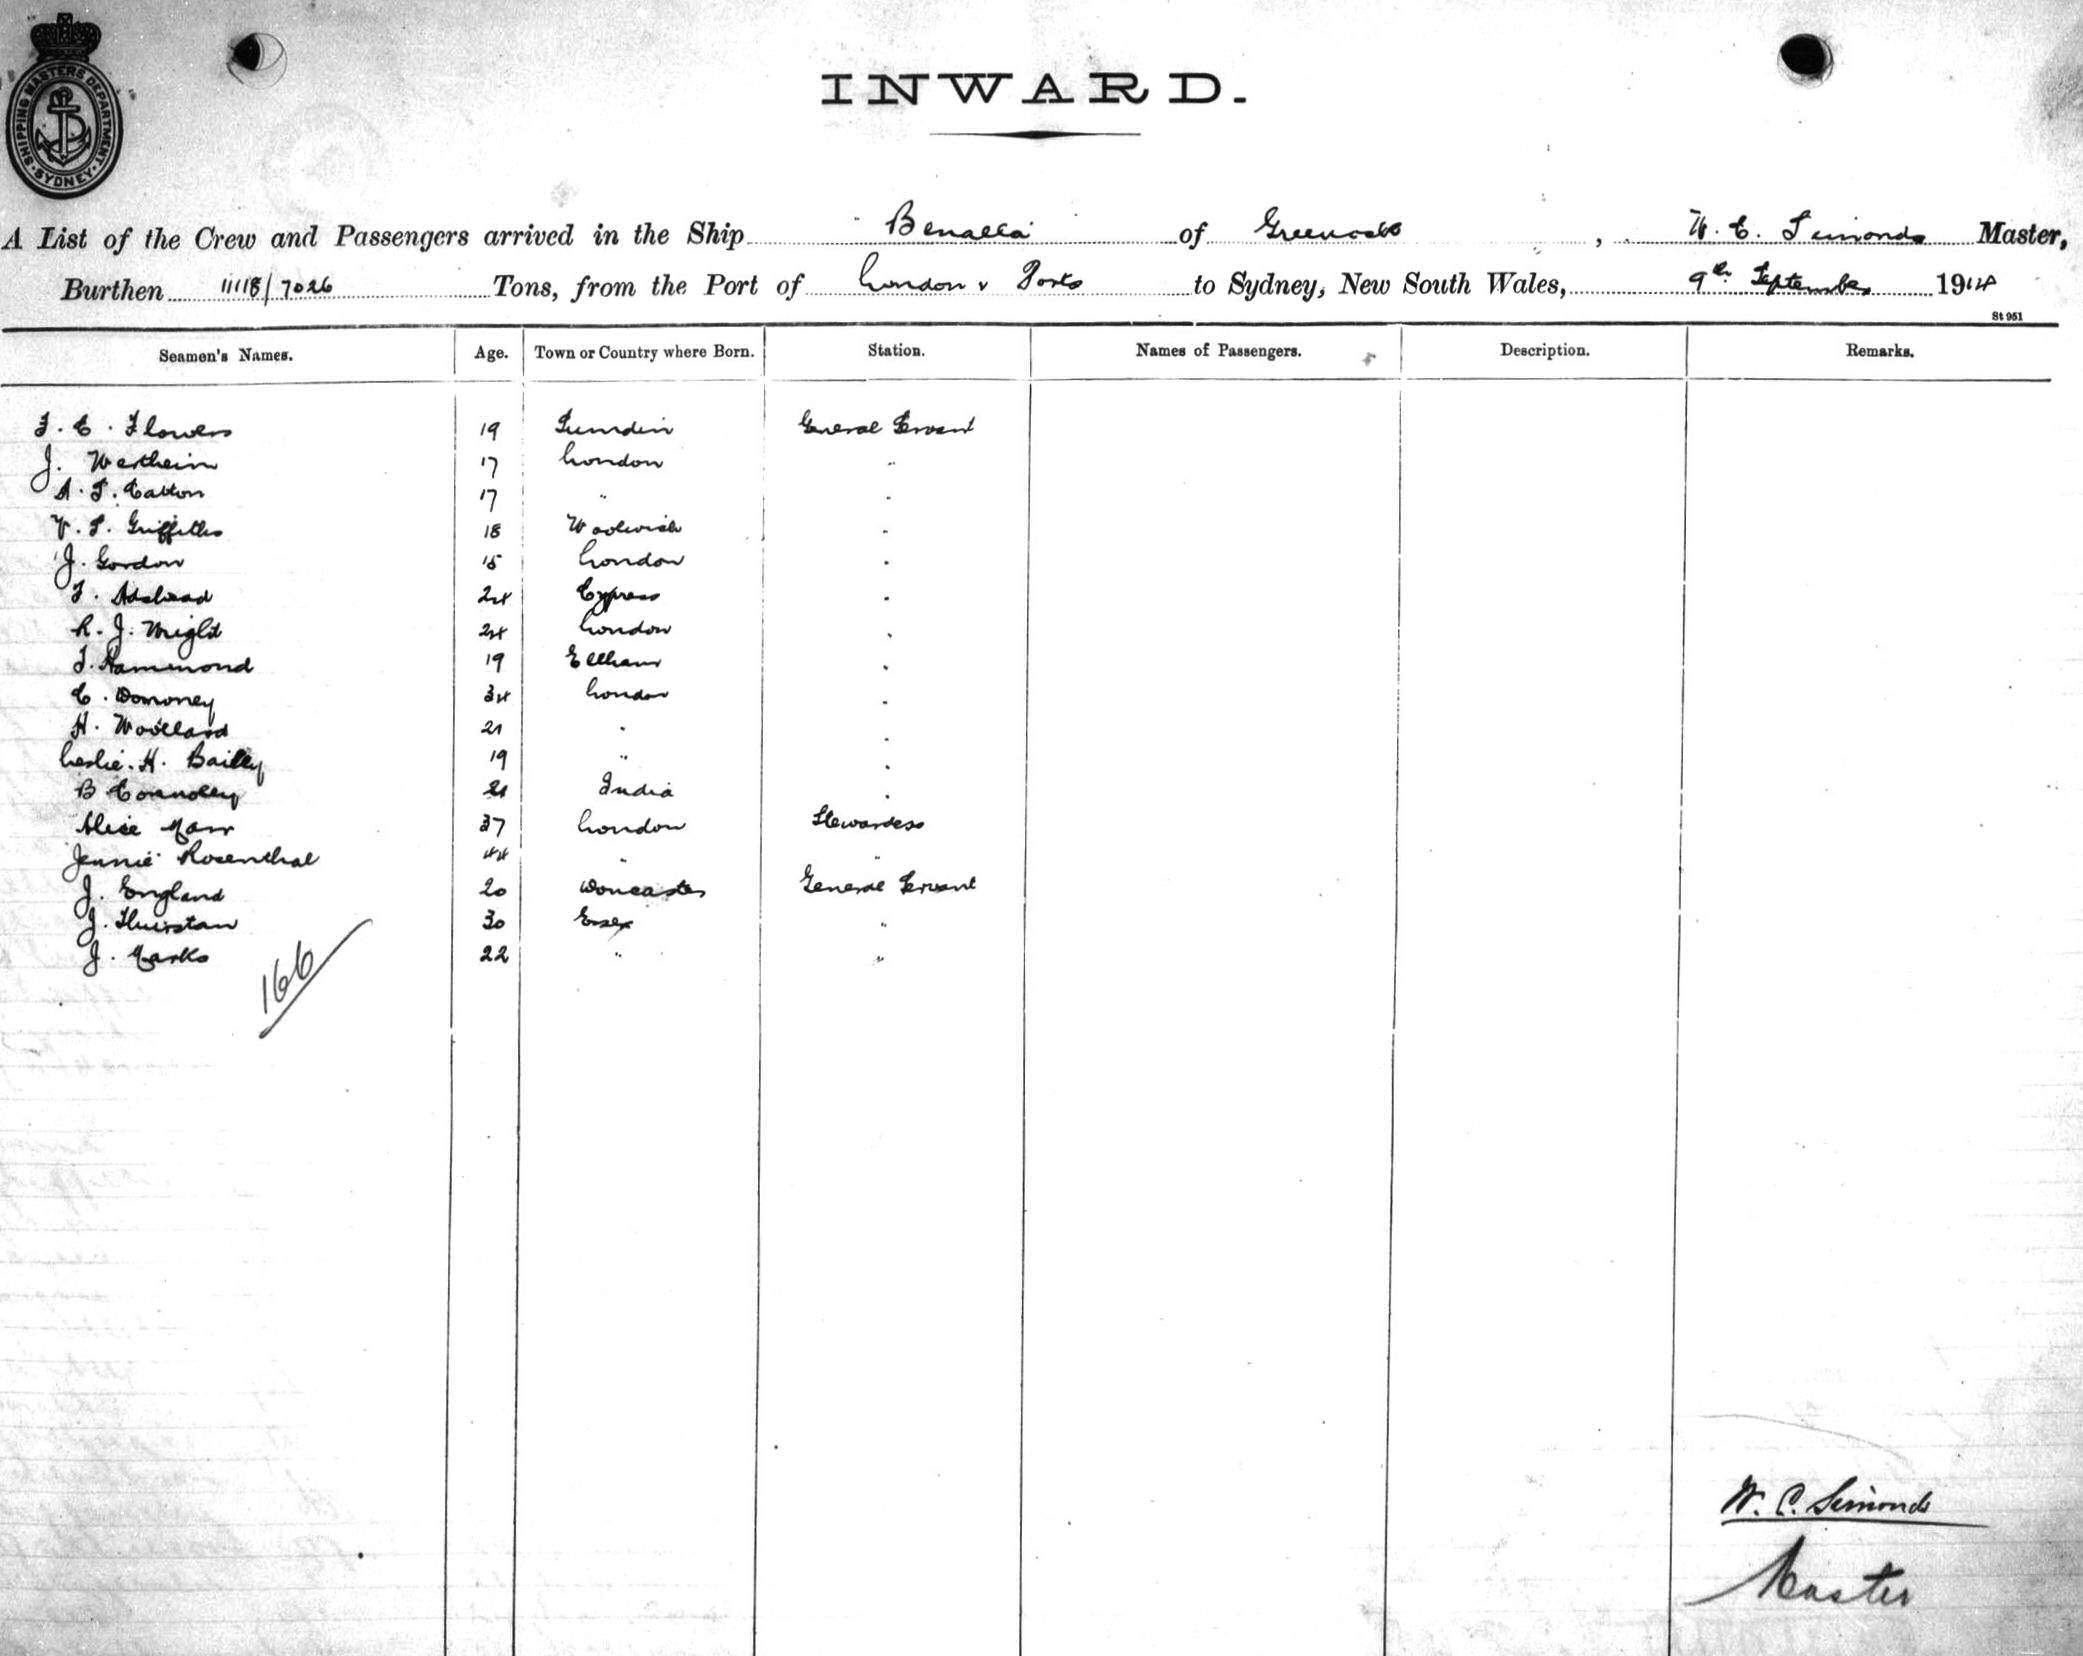 SHIPPING MASTERS DEPARTMENT
SYDNEY
INWARD.
A List of the Crew and Passengers arrived in the Ship "Benalla" of Greenock, W. C. Simonds Master,
Burthen 11118/7026 Tons, from the Port of London & Ports to Sydney, New South Wales, 9th September 1914
St 951
Seamen's Names. Age. Town or Country where Born. Station. Names of Passengers. Description. Remarks.
F. C. Flowers 19 General Servant
J. Wertheim 17 London "
17 " "
V. S. Griffiths 18 Woolwich "
J. Gordon 15 London "
F. Adshead 24 Cyprus "
R. J. Wright 24 London "
Hammond 19 Eltham "
C. Domoney 34 London "
H. Woollard 21 " "
Leslie. H. Bailey 19 " "
B Connolly 21 India "
Alice Marr 37 London Stewardess
Jennie Rosenthal 44 " "
J. England 20 Doncaster General Servant
J. Thurstan 30 Essex "
J. Marks 22 " "
166
W. C. Simonds
Master